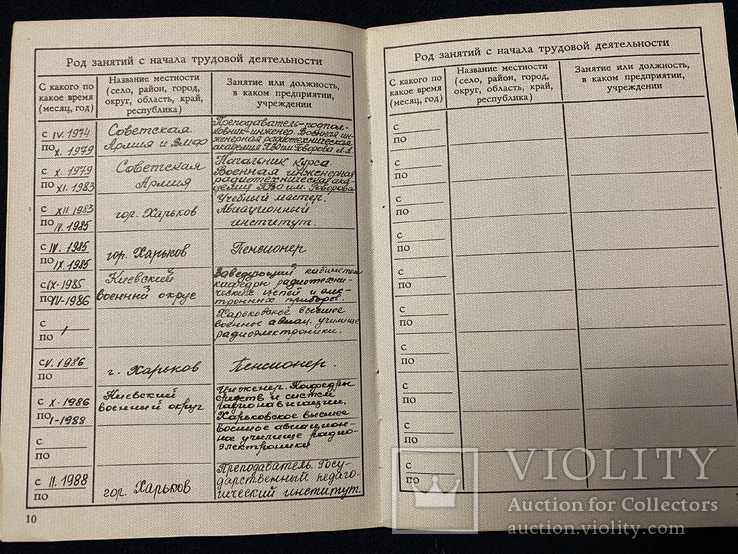 Род занятий с начала трудовой деятельности
С какого по какое время (месяц, год)
Название местности (село, район, город, округ, область, край, республика)
Занятие или должность, в каком предприятии, учреждении
с IV. 1974
по X. 1979
Советская
Армия и ВМФ
Преподаватель-подпол-
ковник-инженер. Военная ин-
женерная радиотехническая
академия ПВО им. Говорова Л.А.
с X. 1979
по XI. 1983
Советская
Армия
Начальник курса
Военная инженерная
радиотехническая ака-
демия ПВО им. Говорова
с XII 1983
по IV. 1985
гор. Харьков
Учебный мастер.
Авиационный
институт.
с IV. 1985
по IX. 1985
гор. Харьков
Пенсионер
с IX-1985
по 1986
Киевский
военный округ
Заведующий кабинетом
кафедры радиотехни-
ческих цепей и элек-
тронных приборы.
с
по
Харьковское высшее
военное авиац. училище
радиоэлектроники.
с V. 1986
по
г. Харьков
Пенсионер.
с X-1986
по I-1988
Киевский
военный округ
Инженер. Кафедры
средств и систем
радионавигации.
Харьковское высшее
с
по
военное авиацион-
ное училище радио-
электроники
с II. 1988
по
гор. Харьков
Преподаватель. Госу-
дарственный педаго-
гический институт.
10
Род занятий с начала трудовой деятельности
С какого по какое время (месяц, год)
Название местности (село, район, город, округ, область, край, республика)
Занятие или должность, в каком предприятии, учреждении
с
по
с
по
с
по
с
по
с
по
с
по
с
по
с
по
с
по
с
по
VIOLITY
Auction for Collectors
auction.violity.com